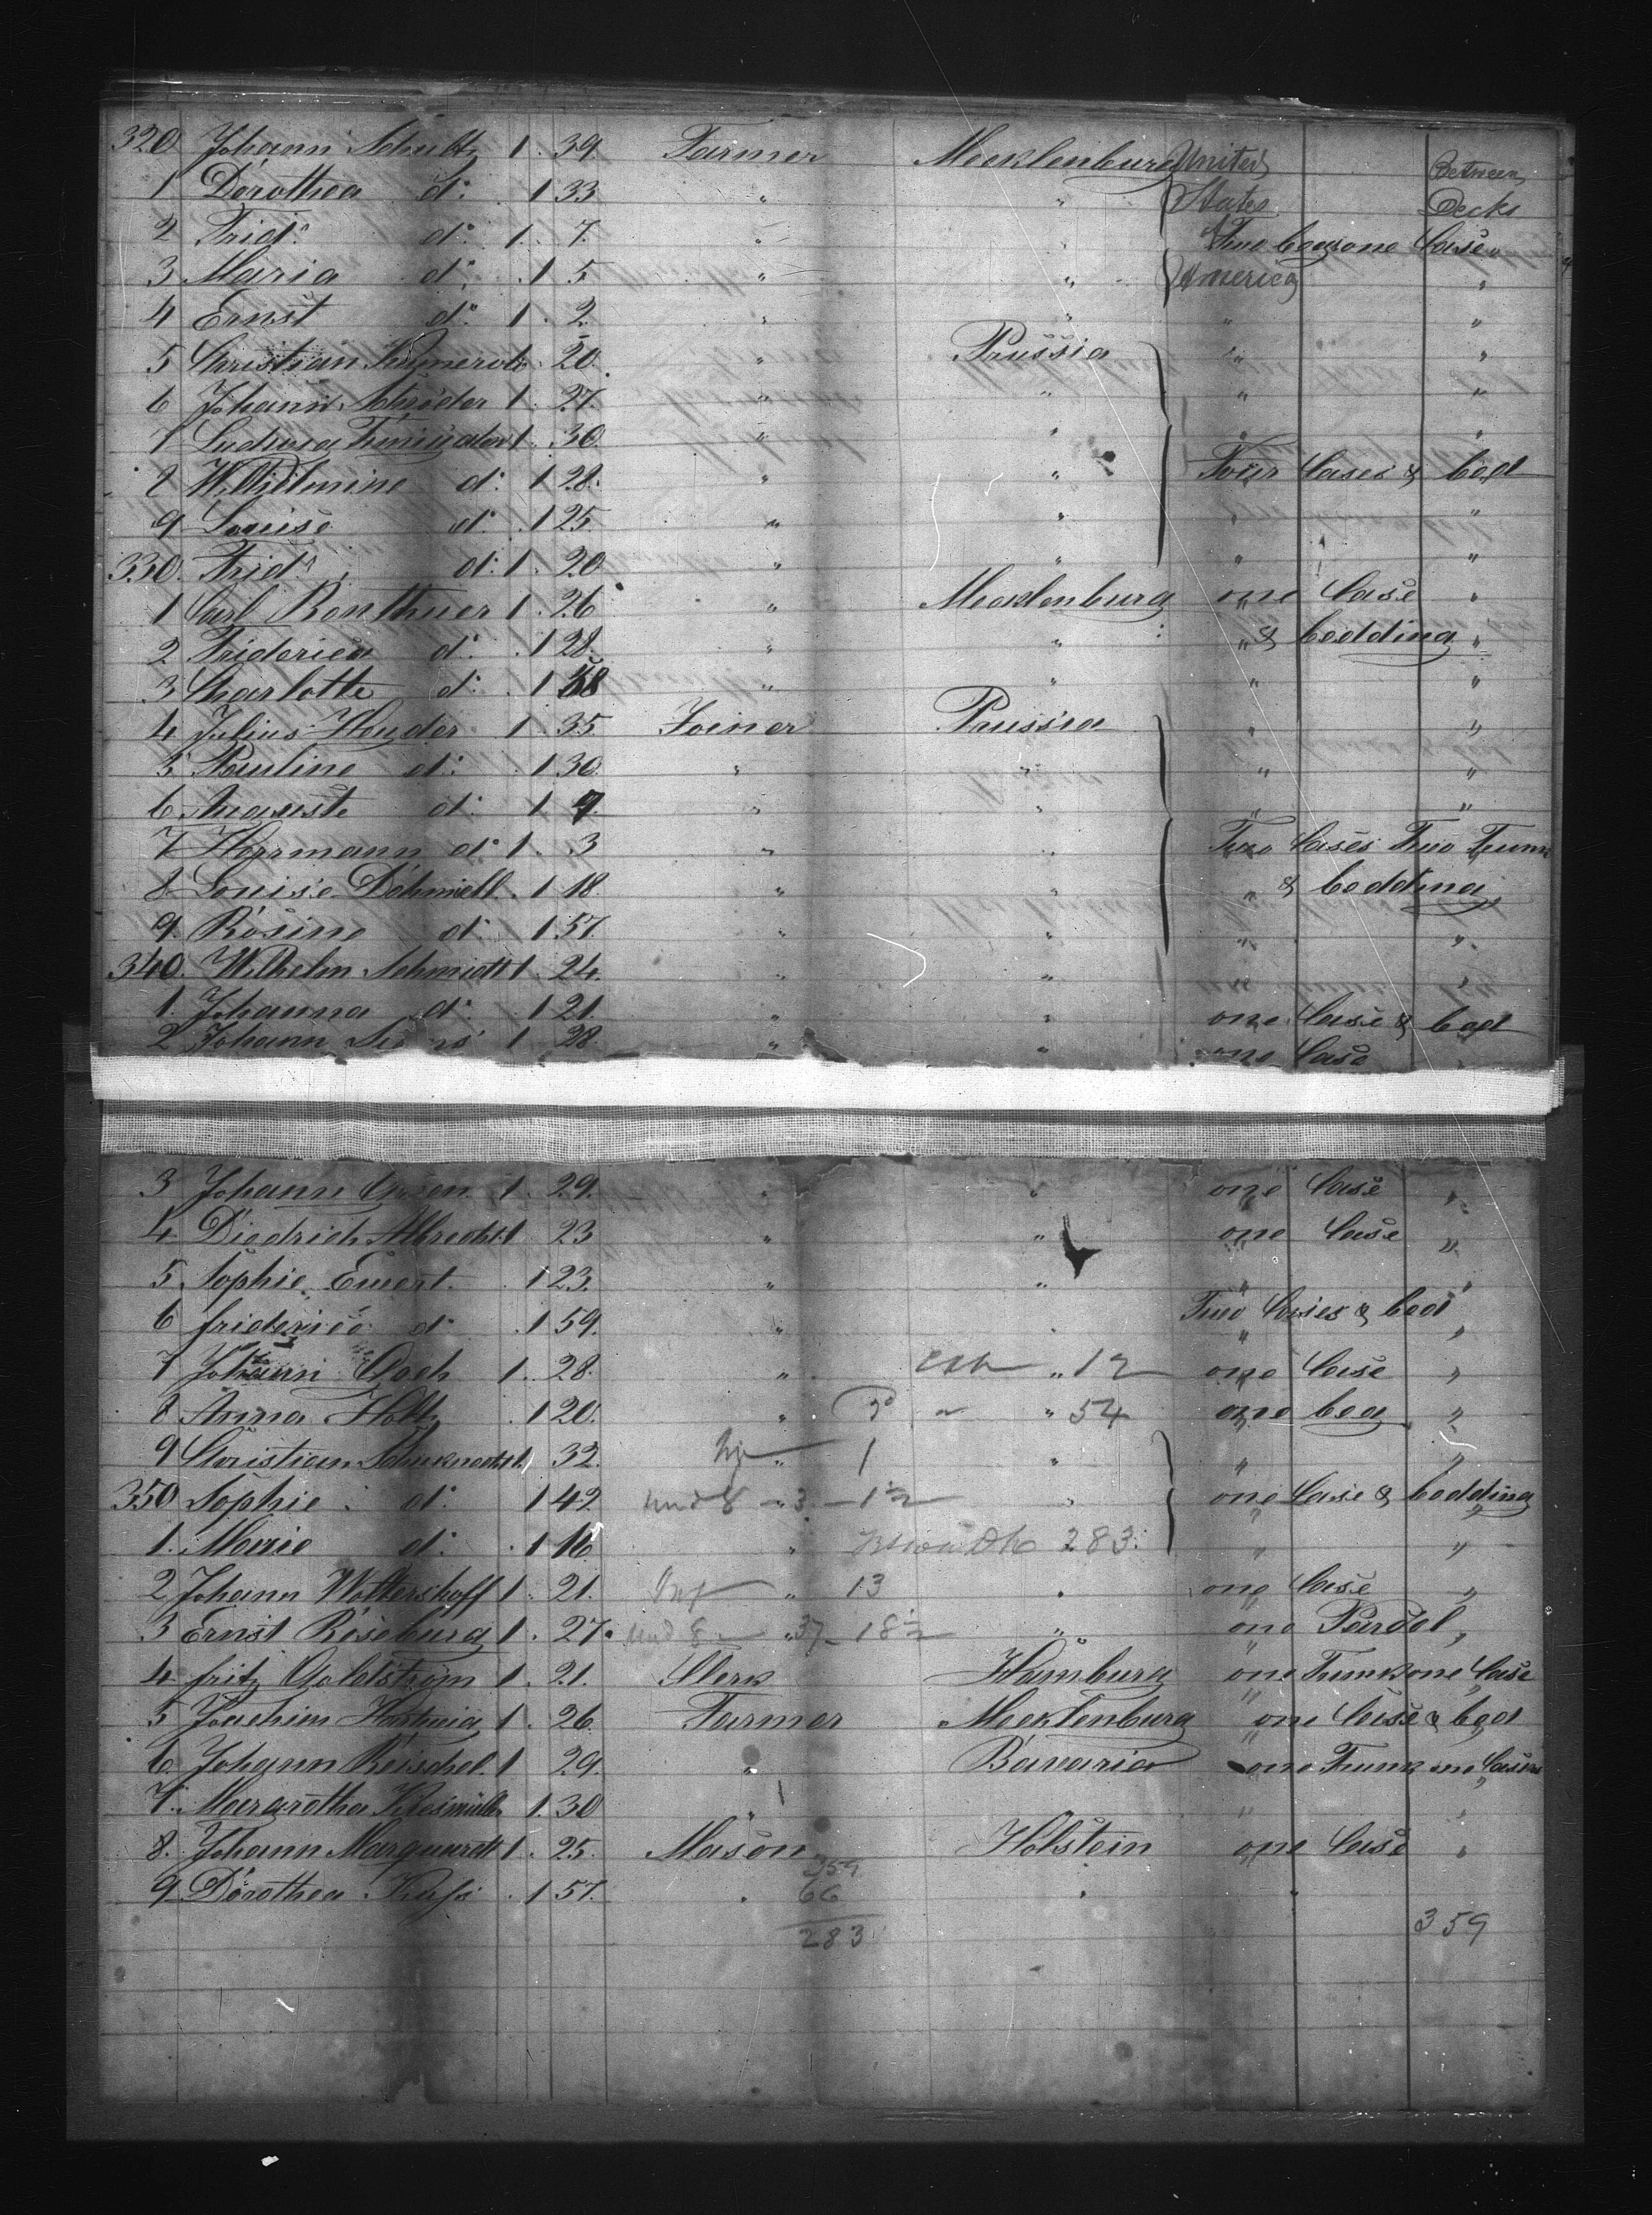 320 Johann Schultz 1 . 39. Farmer Mecklenburg United Between
1 Dorothea d: . 1 33 " " States Decks
2 Frid: d: 1 . 7. " " Two bag one Case
3 Maria d: . 1 5 " " America "
4 Ernst d: 1 . 2. " " " "
5 Christian 1 . 20. " Prussia " "
6 Johann Schröder 1 . 27. " " " "
7 Ludwig 1 . 30. " " " "
8 Wilhelmine d: . 1 28. " " Four Cases & bed
9 Louise d: . 1 25. " " " "
330. Frid: d: 1 . 20 " " " "
1 Carl Bonthuer 1 . 26 " Mecklenburg one Case "
2 Friderica d: . 1 28. " " " & bedding "
3 Charlotte d: . 1 58 " " " "
4 Julius Heuder 1 . 35. Joiner Prussia " "
5 Pauline d: . 1 30. " " " "
6 Auguste d: . 1 9. " " " "
7 Herrmann d: 1 . 3 " " Two Cases Two Trunk
8 Louise . 1 18. " " " & bedding
9. Rosine d: . 1 57. " " " "
340. Wilhelm Schmidt 1 . 24. " " " "
1. Johanna d: . 1 21. " " one Case & bed
2 Johann 1 28 " " one Case "
3 Johann 1 . 29. " " one Case "
4. Diedrich Albrecht 1 23 " " one Case "
5. Sophie Ewert . 1 23. " " " "
6 friderica d: . 1 59. " " Two Cases & bed "
7 Johann 1 . 28. " " 12 one Case "
8 Anna Holtz . 1 20. " " 54 one beg "
9 Christian Schuknecht 1 32. " 1 " " "
350 Sophie d: 1 42. und 8 " 3. - 1½ " one Case & bedding
1. Marie d: . 1 16. " 283. " "
2 Johann Wollershoff 1 . 21. " 13 " one Case "
3 Ernst Roseburg 1 . 27. und 8 " 37 - 18½ " one Pardel "
4. fritz Goldström 1 . 21. Clerk Hamburg one Trunk one Case
5 Joachim Hartwig 1 . 26. Farmer Mecklenburg one Case & bed
6 Johann Reischel 1 29. " Bavaria one Trunk one Case
7. Margretha 1. 30 " " "
8. Johann Marquardt 1 . 25. Mason Holstein one Case "
9 Dorothea . 1 57. " 66 " "
283 359